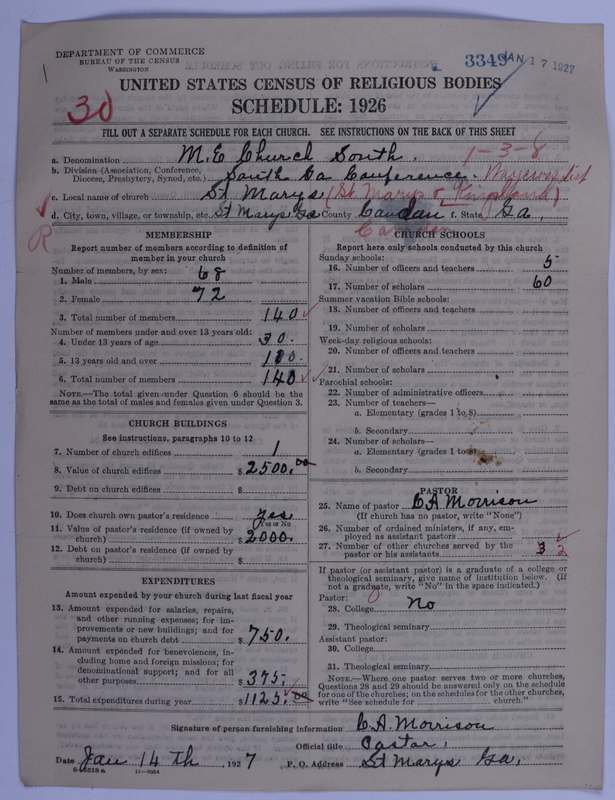 DEPARTMENT OF COMMERCE
BUREAU OF THE CENSUS
WASHINGTON
3349 JAN 17 1927
UNITED STATES CENSUS OF RELIGIOUS BODIES
30
SCHEDULE: 1926
FILL OUT A SEPARATE SCHEDULE FOR EACH CHURCH. SEE INSTRUCTIONS ON THE BACK OF THIS SHEET
a. Denomination M.E Church South. 1-3-8
b. Division (Association, Conference, Diocese, Presbytery, Synod, etc.) South Ga Conference. Waycross dist
c. Local name of church St Marys (St Marys & Kingsland)
d. City, town, village, or township, etc. St Marys Ga County Camdan f. State Ga,
R
Camden
MEMBERSHIP
Report number of members according to definition of
member in your church
Number of members, by sex:
1. Male 68
2. Female 72
3. Total number of members 140
Number of members under and over 13 years old:
4. Under 13 years of age 30.
5. 13 years old and over 110.
6. Total number of members 140
NOTE.—The total given under Question 6 should be
same as the total of males and females given under Question 3.
CHURCH BUILDINGS
See instructions, paragraphs 10 to 12
7. Number of church edifices 1
8. Value of church edifices $ 2500.00
9. Debt on church edifices $
10. Does church own pastor's residence yes
(Yes or No)
11. Value of pastor's residence (if owned by
church) $ 2000.
12. Debt on pastor's residence (if owned by
church) $
EXPENDITURES
Amount expended by your church during last fiscal year
13. Amount expended for salaries, repairs,
and other running expenses; for im-
provements or new buildings; and for
payments on church debt $ 750.
14. Amount expended for benevolences, in-
cluding home and foreign missions; for
denominational support; and for all
other purposes $ 375.
15. Total expenditures during year $ 1125.00
CHURCH SCHOOLS
Report here only schools conducted by this church
Sunday schools:
16. Number of officers and teachers 5
17. Number of scholars 60
Summer vacation Bible schools:
18. Number of officers and teachers
19. Number of scholars
Week-day religious schools:
20. Number of officers and teachers
21. Number of scholars
Parochial schools:
22. Number of administrative officers
23. Number of teachers—
a. Elementary (grades 1 to 8)
b. Secondary
24. Number of scholars—
a. Elementary (grades 1 to 8)
b. Secondary
PASTOR
25. Name of pastor C A Morrison
(If church has no pastor, write "None")
26. Number of ordained ministers, if any, em-
ployed as assistant pastors
27. Number of other churches served by the
pastor or his assistants 3 2
If pastor (or assistant pastor) is a graduate of a college or
theological seminary, give name of institution below. (If
not a graduate, write "No" in the space indicated.)
Pastor:
28. College No
29. Theological seminary
Assistant pastor:
30. College
31. Theological seminary
NOTE.—Where one pastor serves two or more churches,
Questions 28 and 29 should be answered only on the schedule
for one of the churches; on the schedules for the other churches,
write "See schedule for church."
Signature of person furnishing information C. A. Morrison
Official title Pastor,
Date Jan 14 Th, 1927 P. O. Address St Marys Ga,
11—9084